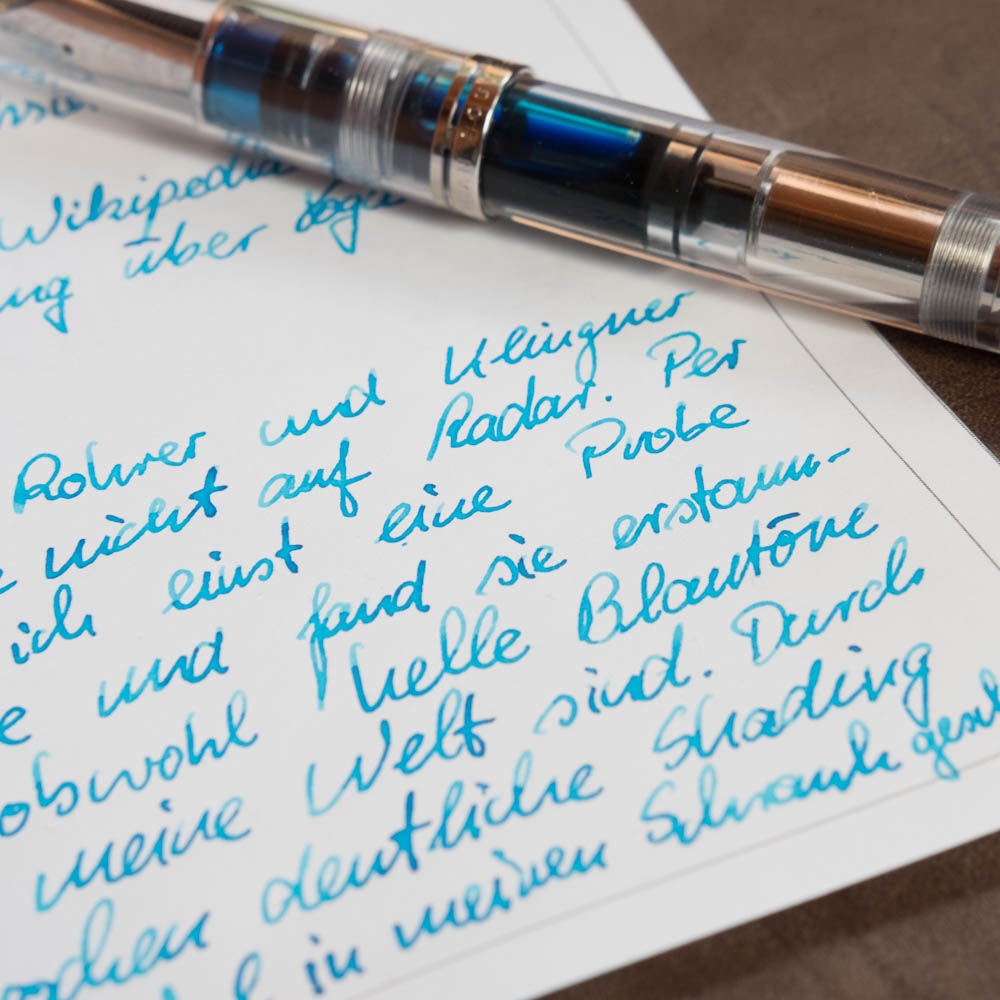 Wikipedia
über Yoga
Rohrer und Klingner
nicht auf Radar. Per
ich einst eine Probe
und fand sie erstaun-
obswohl helle Blautöne
meine Welt sind. Durch
deutliche Shading
in meinen Schrank